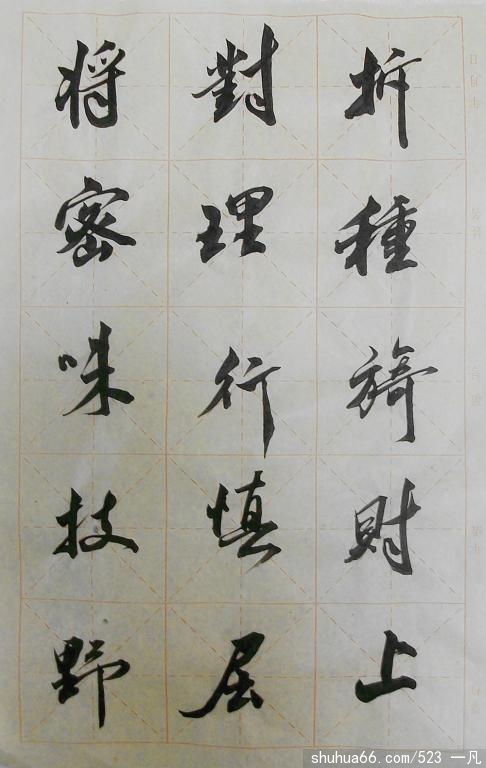 種旖財上
對理行慎
将密味技野
shuhua66.com/523 一凡